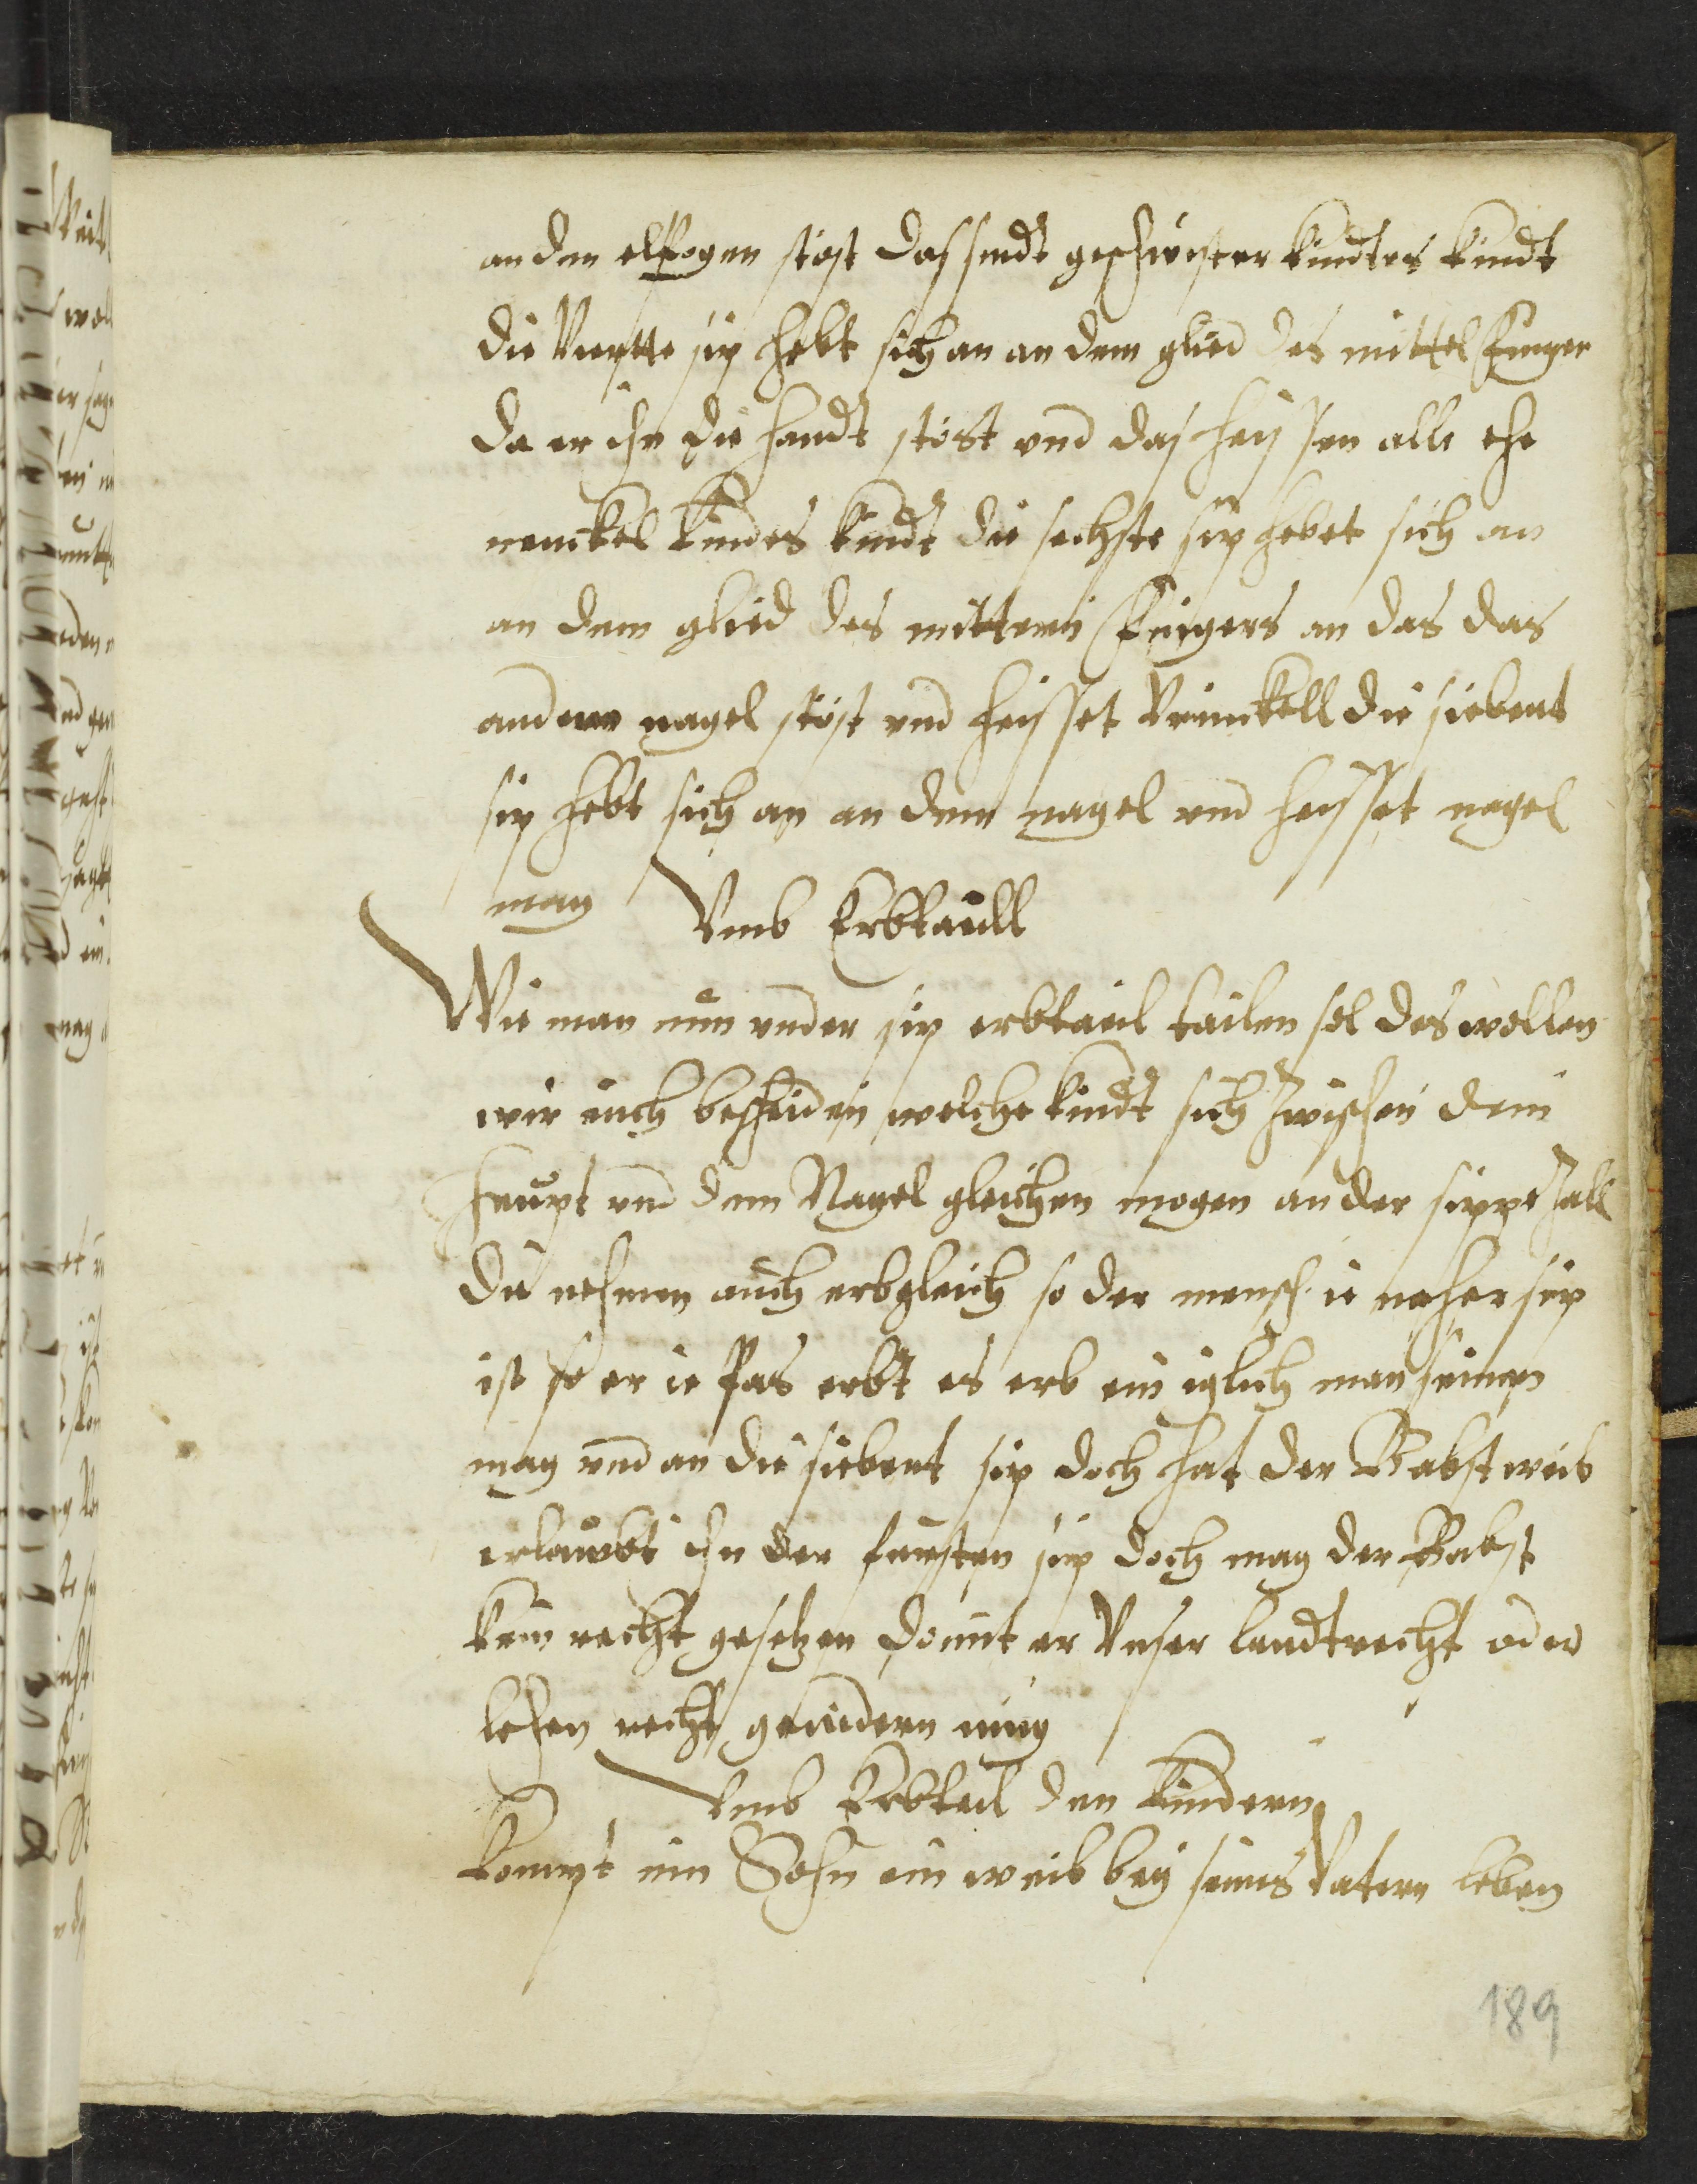 an den elpogen stost das sindt geschwister kindes kindt
die Vierte sip hebt sich an an dem glied des mittel Finger
da er ihn die handt stost vnd das heissen alle ehe
nenckel kindes kindt die sechste sip hebet sich an
an dem glied des mittern Fingers an das das
andere nagel stost vnd heisset Vrenckell die siebent
sip hebt sich an an dem nagel vnd heisset nagel
mag
Vmb Erbtaill
Wie man nun vnder sip erbtail tailen sol des wollen
wir euch bescheiden welche kindt sich zwischen dem
haupt vnd dem Nagel gleichen mogen an der sippe zall
die nehmen auch erb gleich so der mensch ie neher sip
ist so er ie bas erbt es erb ein iglich man seinen
mag vnd an die siebent sip doch hat der Babst weib
erlaubt ihn der funften sip doch mag der Babst
kein recht gesetzen domit er Vnser landtrecht oder
lehen recht gemindern mug
Vmb Erbteil den kindern
kompt ein Sohn ein weib bey seines Vatern leben
189